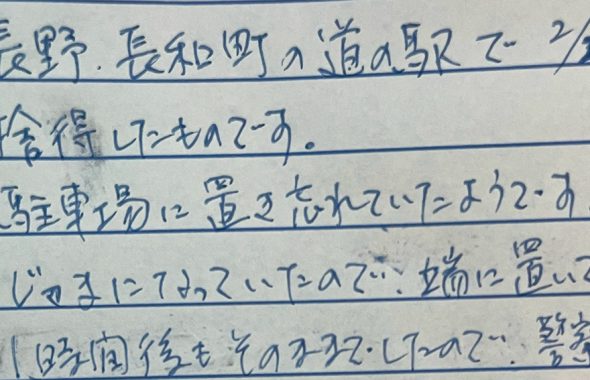 長野.長和町の道の駅で 2/
拾得したものです。
駐車場に置き忘れていたようです
じゃまになっていたので、端に置いて
1時間後もそのままでしたので、警察